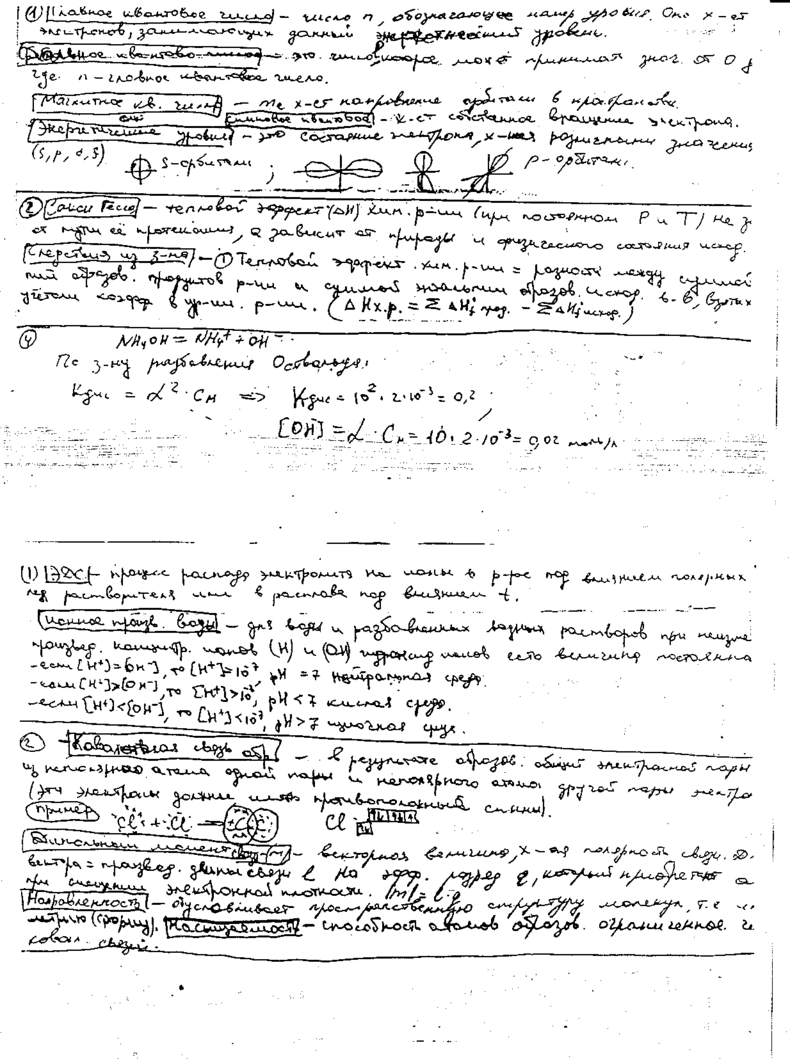 ① Главное квантовое число – число n, обозначающее номер уровня. Оно х-ет
электронов, занимающих данный энергетический уровень.
квантово число – это число, которое может принимат знач. от 0 д
где n – главное квантовое число.
Магнитное кв. число – me х-ет направление орбитали в пространстве.
Спиновое квантовое – х-ет собственное вращение электрона.
Энергетические уровни – это состояние электрона, х-ная различными значения
(s, p, d, f) s-орбитали ; p-орбитали.
② Закон Гесса – тепловой эффект (ΔH) хим. р-ии (при постоянном P и T) не з
от пути её протекания, а зависит от природы и физического состояния исход.
Следствия из з-на – ① Тепловой эффект хим. р-ии = разности между суммой
пий образов. продуктов р-ии и суммой энтальпии образов. исход. в-в, взятых
учётом коэфф в ур-ии р-ии. (ΔHх.р. = Σ ΔHj - Σ ΔHi исход.)
④ NH4OH = NH4+ + OH-
По з-ну разбавления Оствальда:
Kдис = α² · Cм => Kдис = 10² · 2·10⁻³ = 0,2 ;
[OH] = α · Cм = 10 · 2·10⁻³ = 0,02 моль/л
(1) ЭДС – процесс распада электролита на ионы в р-ре под влиянием полярных
растворителя или в расплаве под влиянием t.
ионное произв. воды – для воды и разбавленных водных растворов при неизме
произвед. концентр. ионов (H) и (OH) гидроксид ионов есть величина постоянна
– если [H+]=[OH-], то [H+]=10⁻⁷, pH = 7 нейтральная среда.
– если [H+]>[OH-], то [H+]>10⁻⁷, pH < 7 кислая среда.
– если [H+]<[OH-], то [H+]<10⁻⁷, pH > 7 щелочная среда.
② – Ковалентная связь обр – в результате образов. общей электронной пары
из неполярного атома одной пары и неполярного атома другой пары электро
(эти электроны должны иметь противоположный спины).
пример Cl + Cl → Cl Cl Cl
Дипольный момент связи (m) – векторная величина, х-ая полярность связи. Д.
вектора = произвед. длины связи l на эфф. заряд q, который приобретают а
при смещении электронной плотности. |m| = l·q
Направленность – обусловливает пространственную структуру молекул, т.е
метрию (форму). Насыщаемость – способность атомов образов. ограниченное ч
ковал. связей.